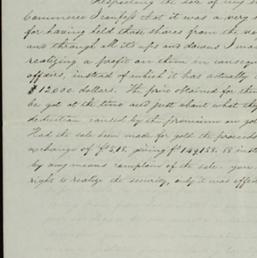 Respecting the sale of my
Commerce I confess that it was a very
for having held these shares from the
and through all its ups and downs I was
realizing a profit on them in conseq
affairs, instead of which it has actually
$12000 dollars. The price obtained for the
be got at the time and just about what the
deduction caused by the premium on gol
Had the sale been made for gold the proceeds
exchange of giving inst
by any means complain of the sale. you
right to realize the security, only it was effe